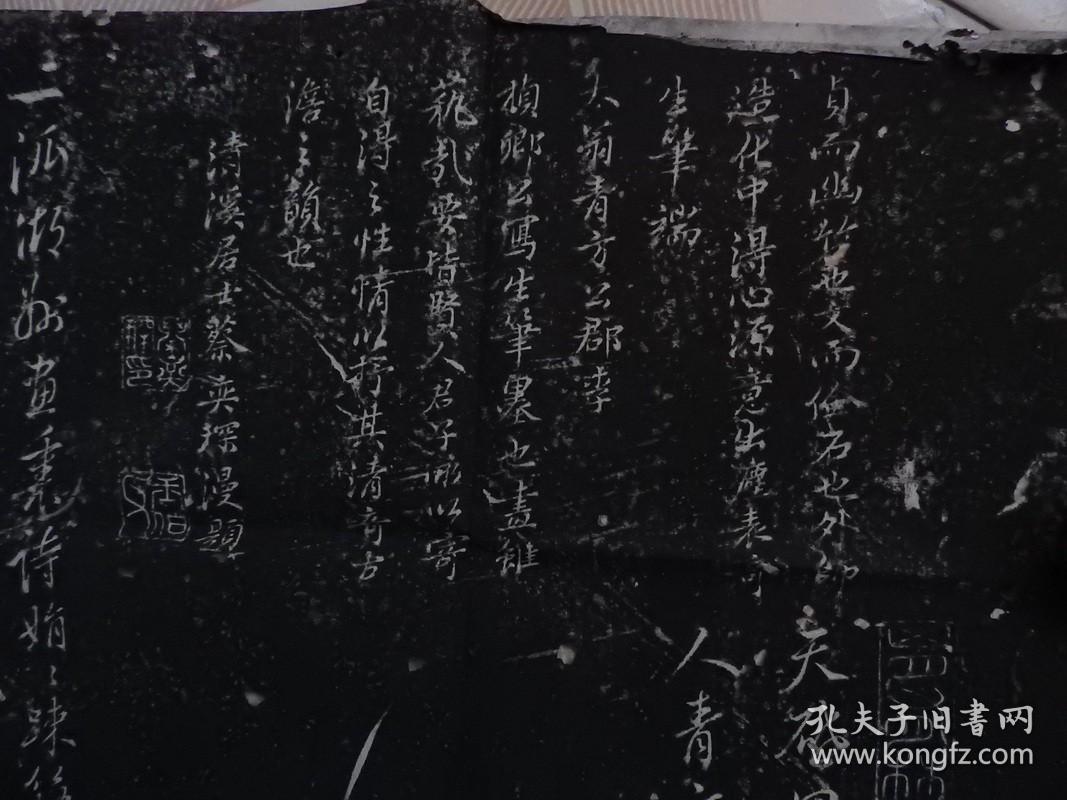 貞而幽竹也文而儉石也外師
造化中得心源意出塵表奇
生筆端
大翁青方公郡李
楨卿公寫生筆墨也畫雖
藝哉要皆賢人君子所以寄
自得之性情以抒其清奇古
澹之韻也
清溪居士蔡奕琛漫題
一派湖州畫
侍娟〻疎
天啟
人青
孔夫子旧書网
www.kongfz.com